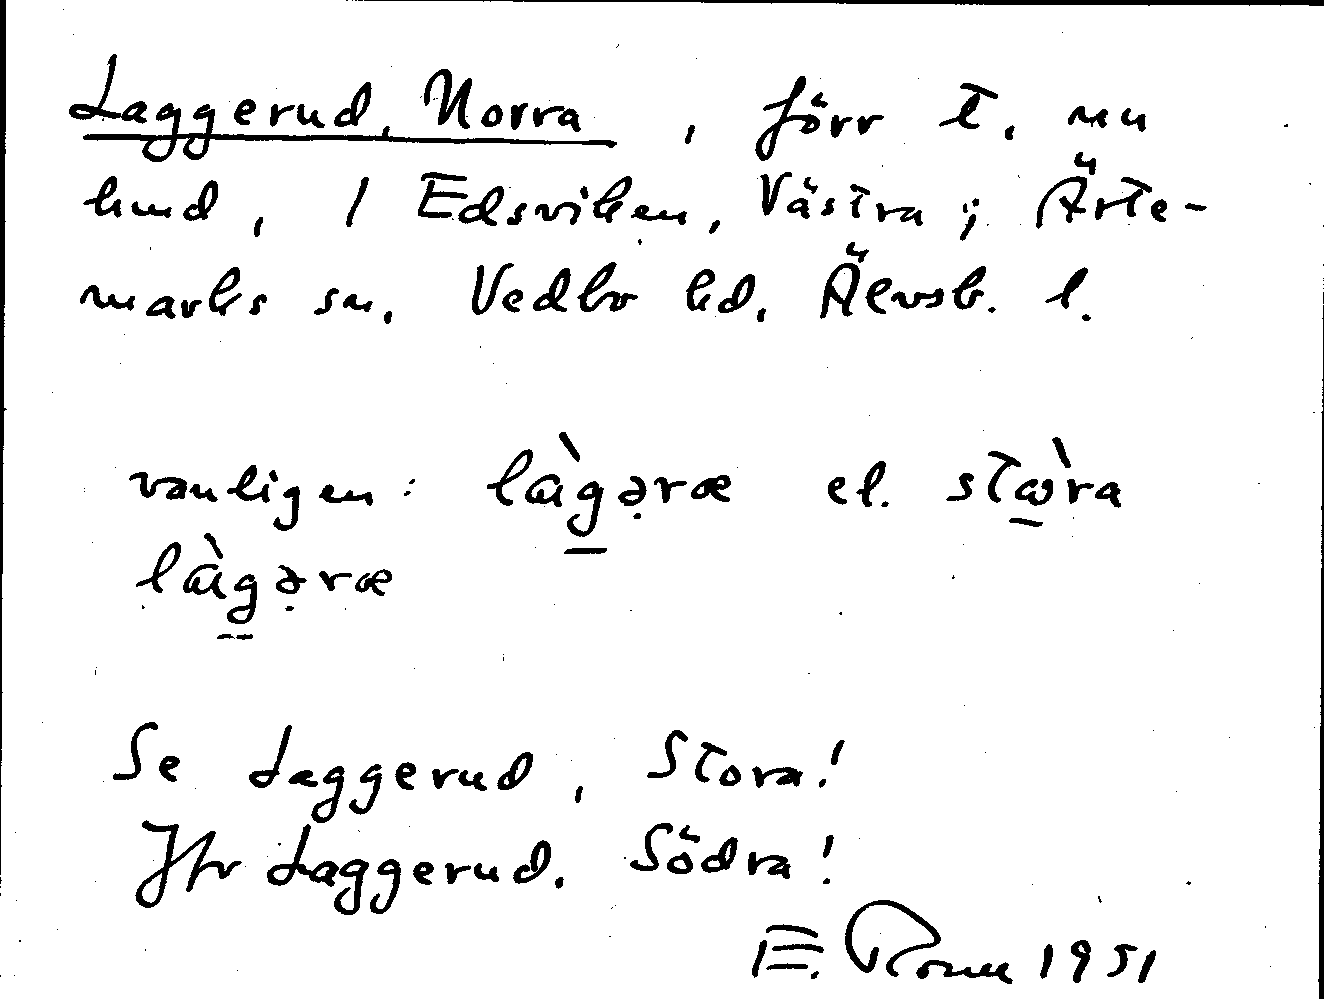 Laggerud, Norra, förr t. nu
hmd, / Edsviken, Västra; Ärte-
marks sn. Vedbo hd. Älvsb. l.
vanligen: là̱gə̣ræ el. stɷ̱̀ra
là̱gə̣ræ
Se Laggerud, Stora!
Jfr Laggerud. Södra!
E. 1951